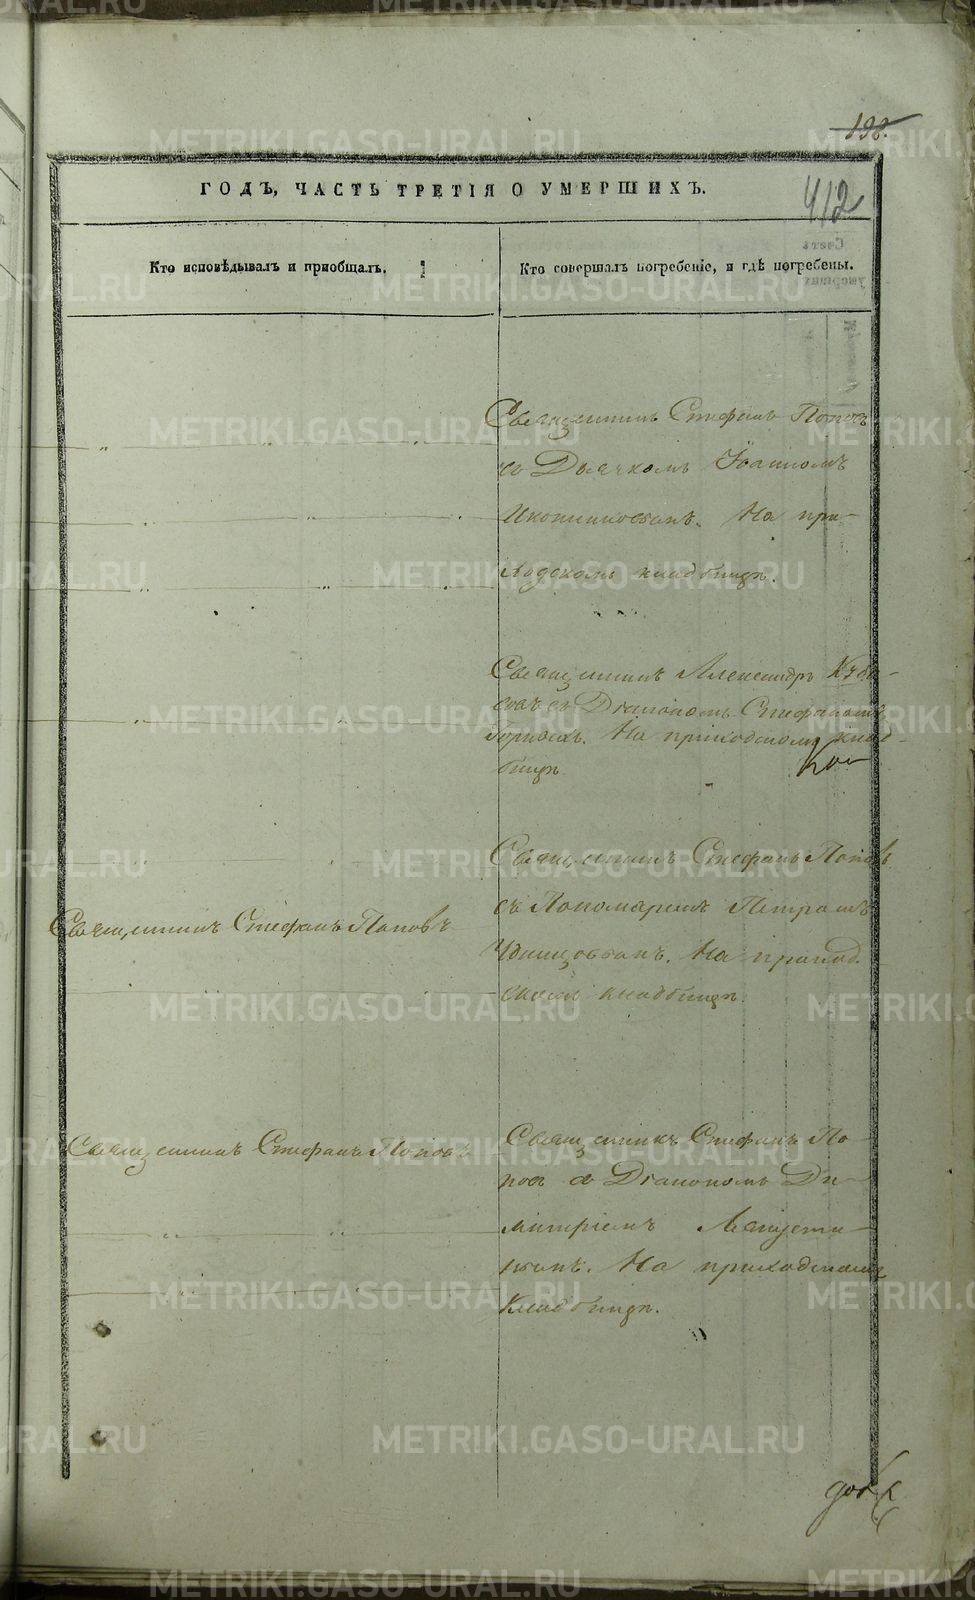 198.
ГОДЪ, ЧАСТЬ ТРЕТІЯ О УМЕРШИХЪ.
412
Кто исповѣдывалъ и пріобщалъ.
Кто совершалъ погребеніе, и гдѣ погребены.
Священникъ Стефанъ Поповъ
съ Дьячкомъ Іоанномъ
Иконниковымъ. На при-
ходскомъ кладбищѣ.
Священникъ Александръ
съ Діакономъ Стефаномъ
На приходскомъ клад-
бищѣ.
Священникъ Стефанъ Поповъ
Священникъ Стефанъ Поповъ
съ Пономаремъ Петромъ
На приход
скомъ кладбищѣ.
Священникъ Стефанъ Поповъ
Священникъ Стефанъ По-
повъ съ Діакономъ Ди-
митріемъ
На приходскомъ
Кладбищѣ.
METRIKI.GASO-URAL.RU